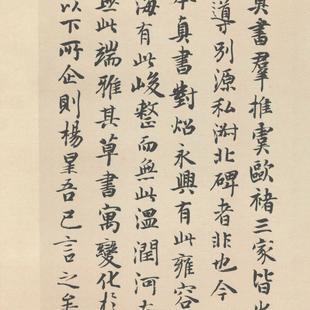 真書羣推虞歐褚三家皆出
導別源私淑北碑者非也今
本真書對炤永興有此雍容
海有此峻整而無此溫潤河南
無此端雅其草書寓變化於
以下所企則楊星吾已言之矣